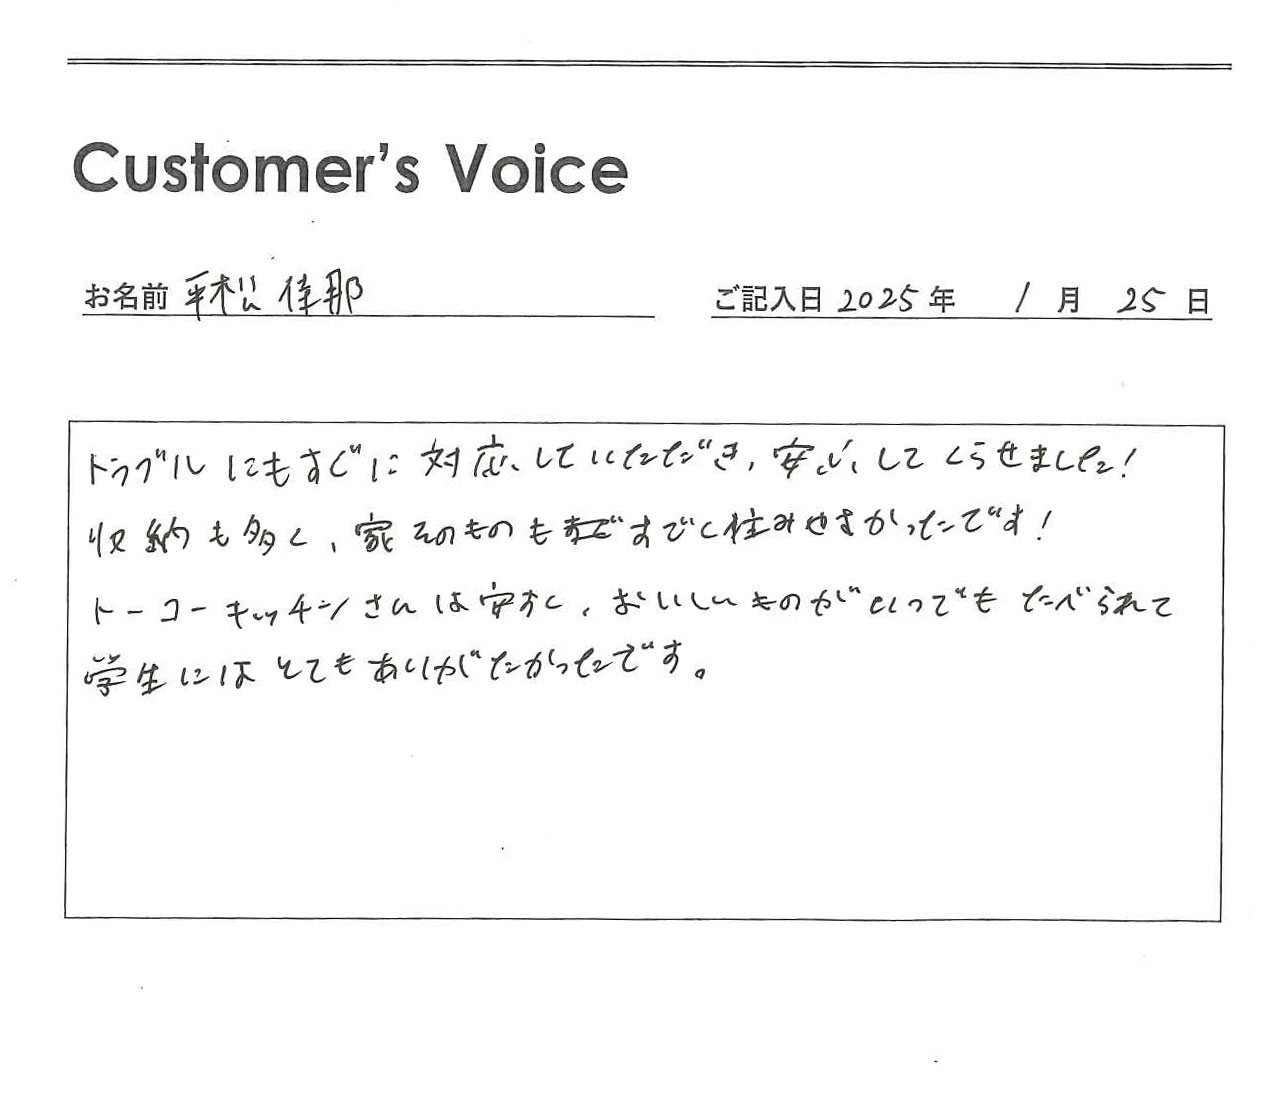 Customer's Voice
お名前 平松 佳那
ご記入日 2025 年 1 月 25 日
トラブルにもすぐに対応していただき、安心してくらせました！
収納も多く、家そのものも すごく住みやすかったです！
トーコーキッチンさんは安く、おいしいものがいつでもたべられて
学生にはとてもありがたかったです。